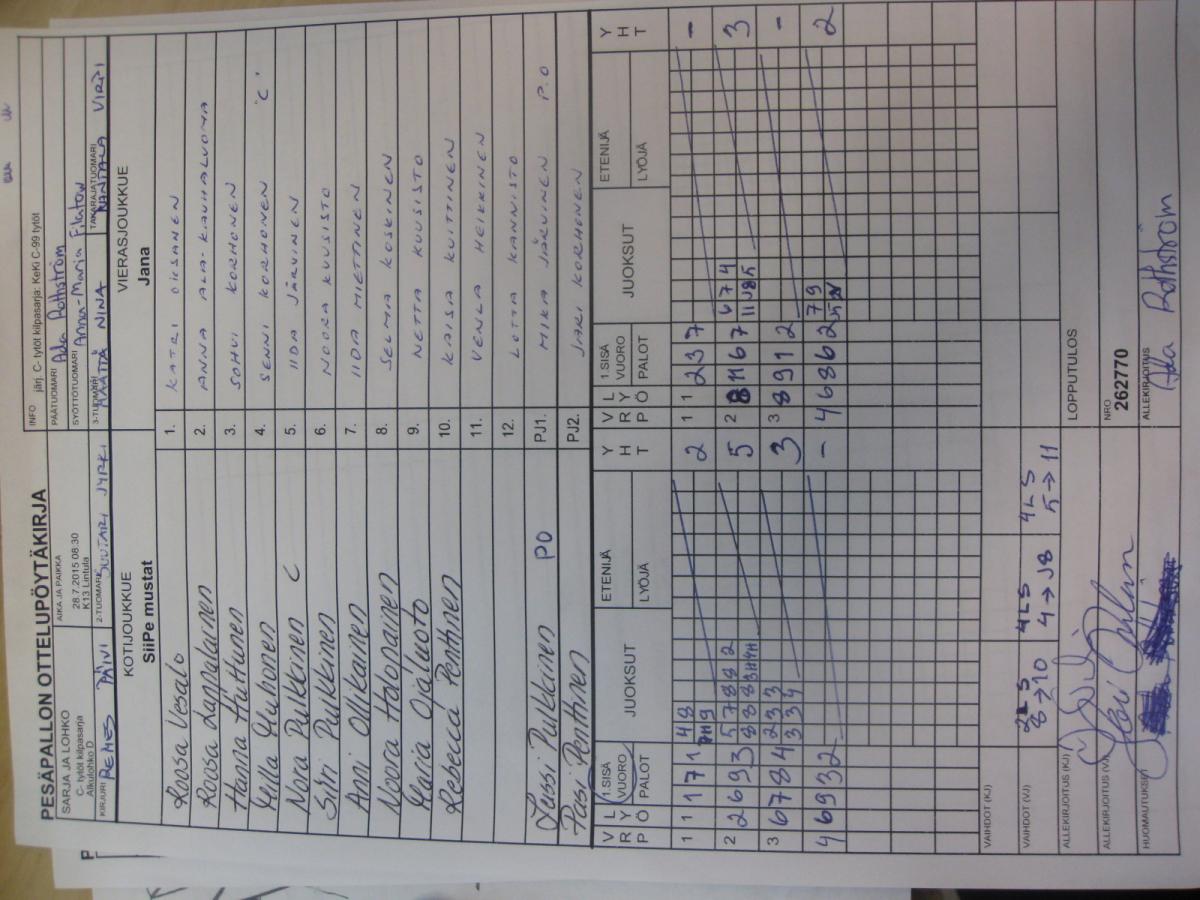 PESÄPALLON OTTELUPÖYTÄKIRJA
SARJA JA LOHKO
C- tytöt kilpasarja
Alkulohko D
AIKA JA PAIKKA
28.7.2015 08.30
K13 Lintula
INFO järj. C- tytöt kilpasarja: KeKi C-99 tytöt
PÄÄTUOMARI Ada Rothström
SYÖTTÖTUOMARI Anna-Maria Filatow
KIRJURI REMES PÄIVI
2-TUOMARI SUUTARI JYRKI
3-TUOMARI MÄÄTTÄ NINA
TAKARAJATUOMARI RANTALA VIRPI
KOTIJOUKKUE
SiiPe mustat
VIERASJOUKKUE
Jana
Roosa Vesalo 1. KATRI OKSANEN
Roosa Lappalainen 2. ANNA ALA-KAUHALUOMA
Hanna Huttunen 3. SOHVI KORHONEN
Milla Muhonen 4. SENNI KORHONEN "C"
Nora Pulkkinen C 5. IIDA JÄRVINEN
Siiri Pulkkinen 6. NOORA KUUSISTO
Anni Ollikainen 7. IIDA MIETTINEN
Noora Holopainen 8. SELMA KOSKINEN
Maria Ojaluoto 9. NETTA KUUSISTO
Rebecca Penttinen 10. KAISA KUITTINEN
11. VENLA HEIKKINEN
12. LOTTA KANNISTO
Jussi Pulkkinen PO PJ1. MIKA JÄRVINEN P.O
Pasi Penttinen PJ2. JARI KORHONEN
V R P L Y Ö 1.SISÄ VUORO PALOT JUOKSUT ETENIJÄ LYÖJÄ Y H T V R P L Y Ö 1.SISÄ VUORO PALOT JUOKSUT ETENIJÄ LYÖJÄ Y H T
1 1 1 7 1 4 8 2 1 1 2 3 7 -
7 H9
2 2 6 9 3 5 7 8 9 2 5 2 8 11 6 7 6 7 4 3
8 8 8 3H 4H 11 J8 5
3 6 7 8 4 2 3 3 3 3 8 9 1 2 -
3 3 4
4 6 9 3 2 - 4 6 8 6 2 7 9 2
VAIHDOT (KJ)
VAIHDOT (VJ) 2LS 8→10 4LS 4→J8 4LS 5→11
LOPPUTULOS
ALLEKIRJOITUS (KJ)
ALLEKIRJOITUS (VJ)
NRO
262770
HUOMAUTUKSET
ALLEKIRJOITUS
Ada Rothström